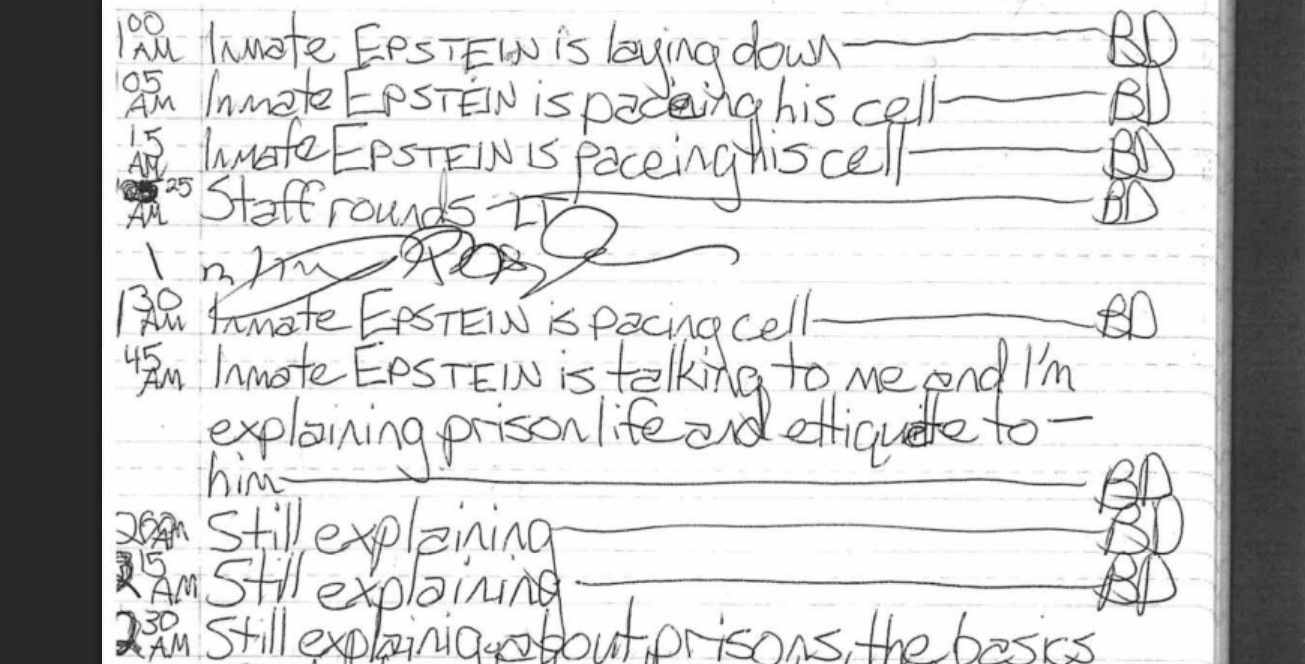 1 00 AM Inmate EPSTEIN is laying down BD
05 AM Inmate EPSTEIN is paceing his cell BD
15 AM Inmate EPSTEIN is paceing his cell BD
25 AM Staff rounds BD
1 30 AM Inmate EPSTEIN is pacing cell BD
45 AM Inmate EPSTEIN is talking to me and I'm
explaining prison life and ettiquitte to —
him BD
2 00 AM Still explaining BD
2 15 AM Still explaining BD
2 30 AM Still explainig about prisons, the basics